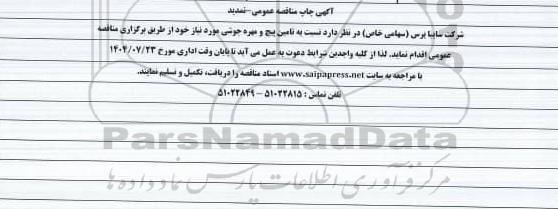 آگهی چاپ مناقصه عمومی-تمدید
شرکت سایپا پرس (سهامی خاص) در نظر دارد نسبت به تامین پیچ و مهره جوشی مورد نیاز خود از طریق برگزاری مناقصه
عمومی اقدام نماید. لذا از کلیه واجدین شرایط دعوت به عمل می آید تا پایان وقت اداری مورخ ۱۴۰۴/۰۷/۲۳
با مراجعه به سایت www.saipapress.net اسناد مناقصه را دریافت، تکمیل و تسلیم نمایند.
تلفن تماس : ۵۱۰۲۲۸۱۵ – ۵۱۰۲۲۸۴۹
ParsNamadData
مرکز فرآوری اطلاعات پارس نماد داده ها